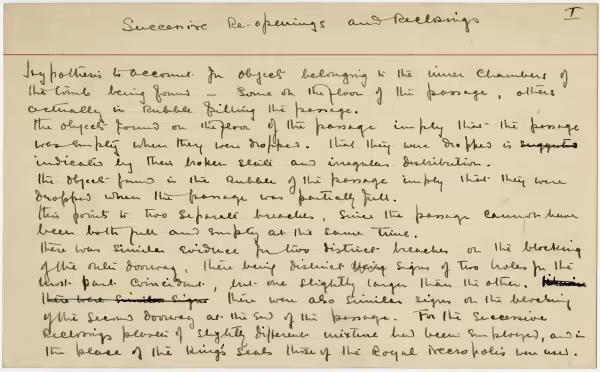 I
Successive Re-openings and Reclosings
Hypothesis to account for objects belonging to the inner chambers of
the tomb being found – some on the floor of the passage, others
actually in rubble filling the passage.
The objects found on the floor of the passage imply that the passage
was empty when they were dropped. That they were dropped is suggested
indicated by their broken state and irregular distribution.
The objects found in the rubble of the passage imply that they were
dropped when the passage was partially full.
This points to two separate breaches, since the passage cannot have
been both full and empty at the same time.
There was similar evidence for two distinct breaches on the blocking
of the outer doorway, there being distinct signs of two holes for the
most part coincident, but one slightly larger than the other.
there was similar signs there were also similar signs on the blocking
of the second doorway at the end of the passage. For the successive
reclosings plaster of slightly different mixture had been employed, and in
the place of the King's seals those of the Royal Necropolis were used.